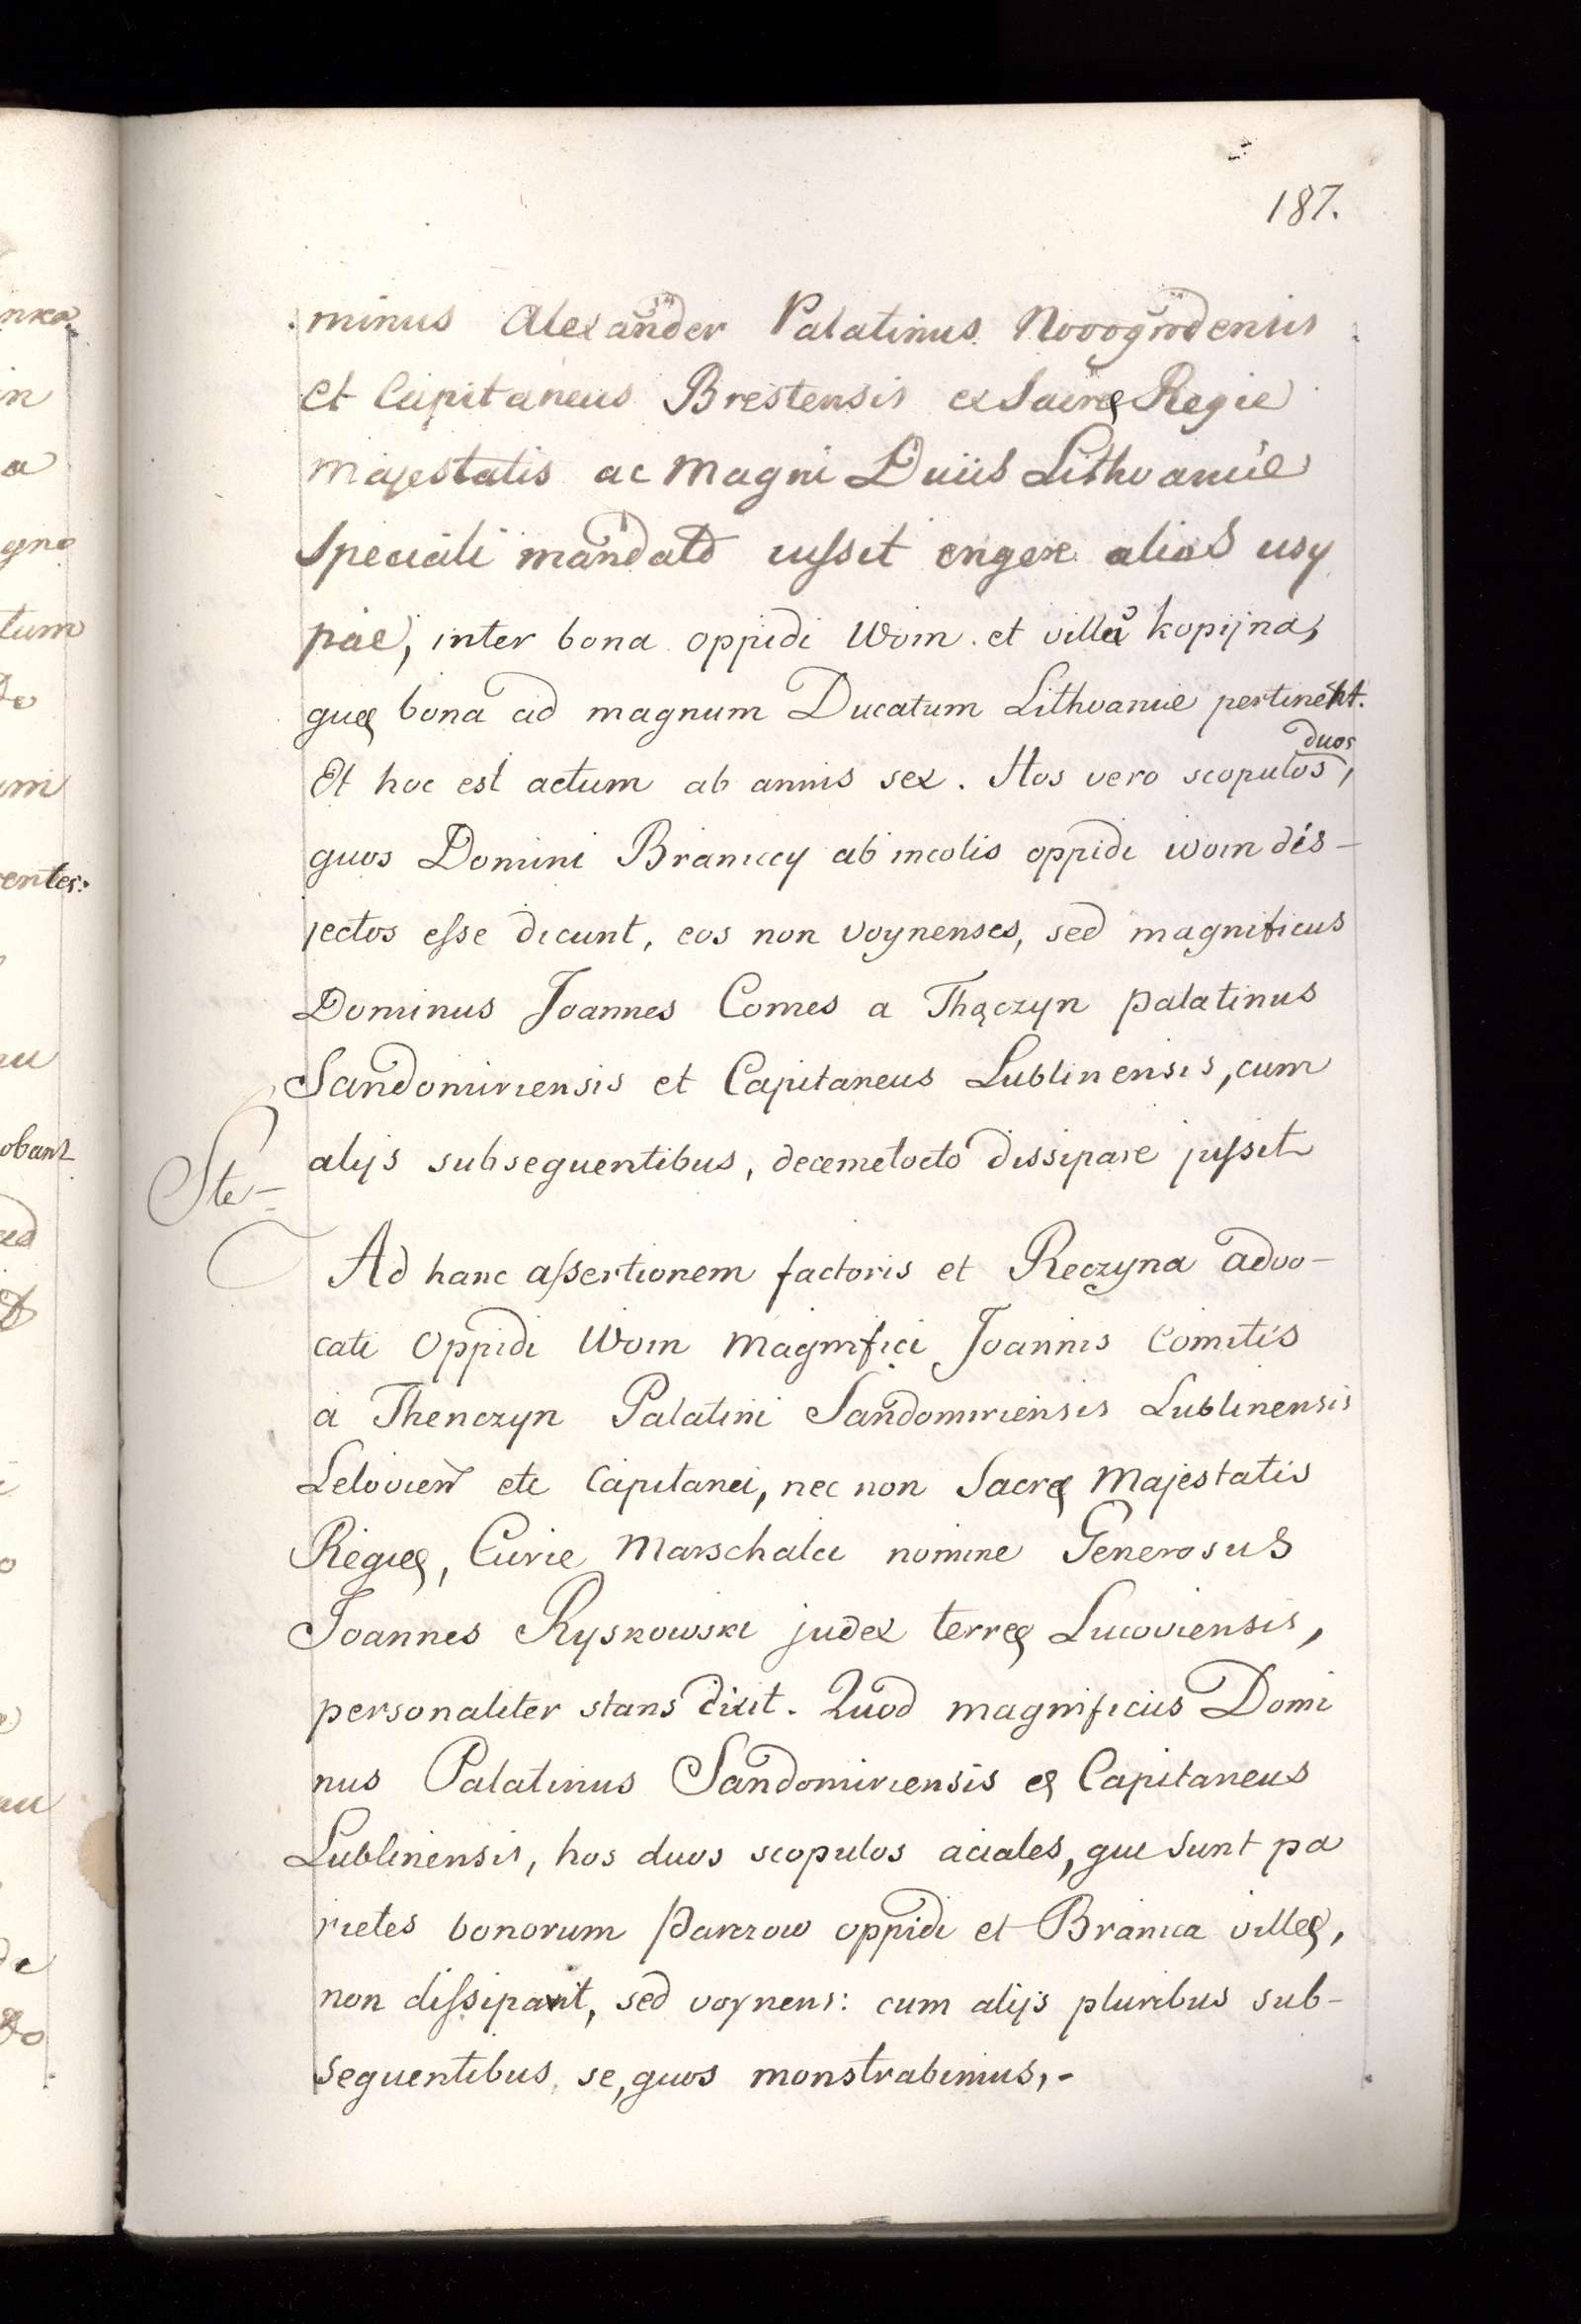 187.
minus Alexander Palatinus Novogrodensis
et Capitaneus Brestensis ex Sacrę Regie
Majestatis ac Magni Ducis Lithvanie
Speciali mandato iussit erigere alias usy
pac, inter bona oppidi Woin. et villa kopijna,
quę bona ad magnum Ducatum Lithvanie pertinent.
Et hoc est actum ab annis sex. Hos vero scopulos, duos
quos Domini Braniccy ab incolis oppidi woin dis-
jectos esse dicunt, eos non voynenses, sed magnificus
Dominus Joannes Comes a Thączyn palatinus
Sandomiriensis et Capitaneus Lublinensis, cum
alijs subsequentibus, decemetocto dissipare jussit
Ste-
Ad hanc assertionem factoris et Reczyna advo-
cati oppidi Woin Magnifici Joannis Comitis
a Thenczyn Palatini Sandomiriensis Lublinensis
Lelovien etc Capitanei, nec non Sacrę Majestatis
Regię, Curie Marschalci nomine Generosus
Joannes Ryskowski judex terrę Lucoviensis,
personaliter stans dixit. Quod magnificus Domi
nus Palatinus Sandomiriensis et Capitaneus
Lublinensis, hos duos scopulos aciales, qui sunt pa
rietes bonorum Parczow oppidi et Branica villę,
non dissipavit, sed voynens: cum alijs pluribus sub-
sequentibus se, quos monstrabimus,-